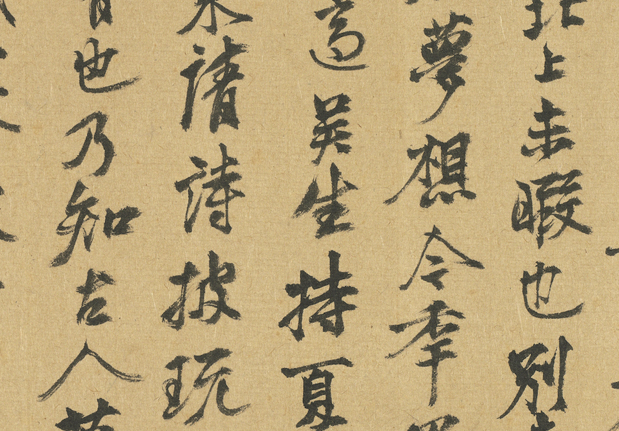 上未暇也別
夢想今季
適英生持夏
請詩披玩
也乃知古人